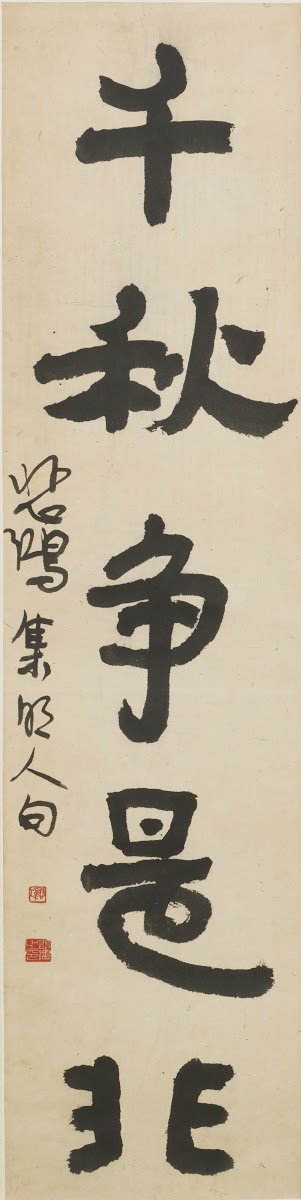 千秋争是非
悲鴻集明人句